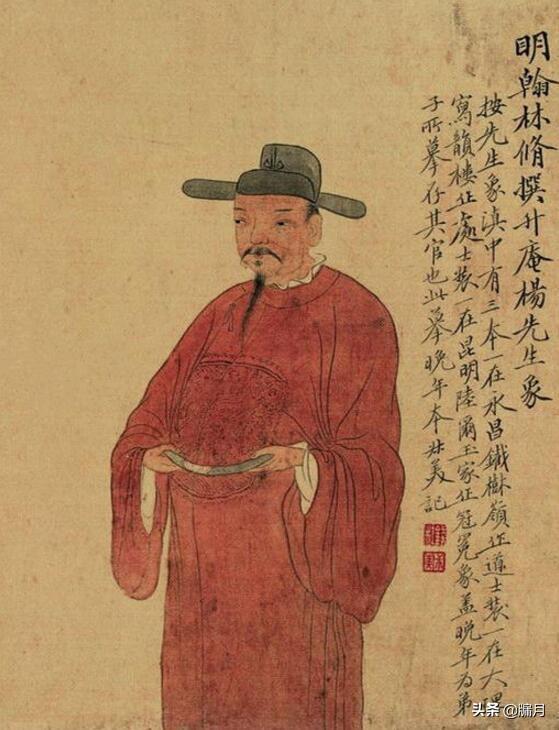 明翰林脩撰升庵楊先生象
按先生象滇中有三本一在永昌鐵樹嶺作道士裝一在大理
寫韻樓作處士裝一在昆明陸爾玉家作冠冕象蓋晚年為弟
子所摹存其官也此摹晚年本尗美記
头条 @月